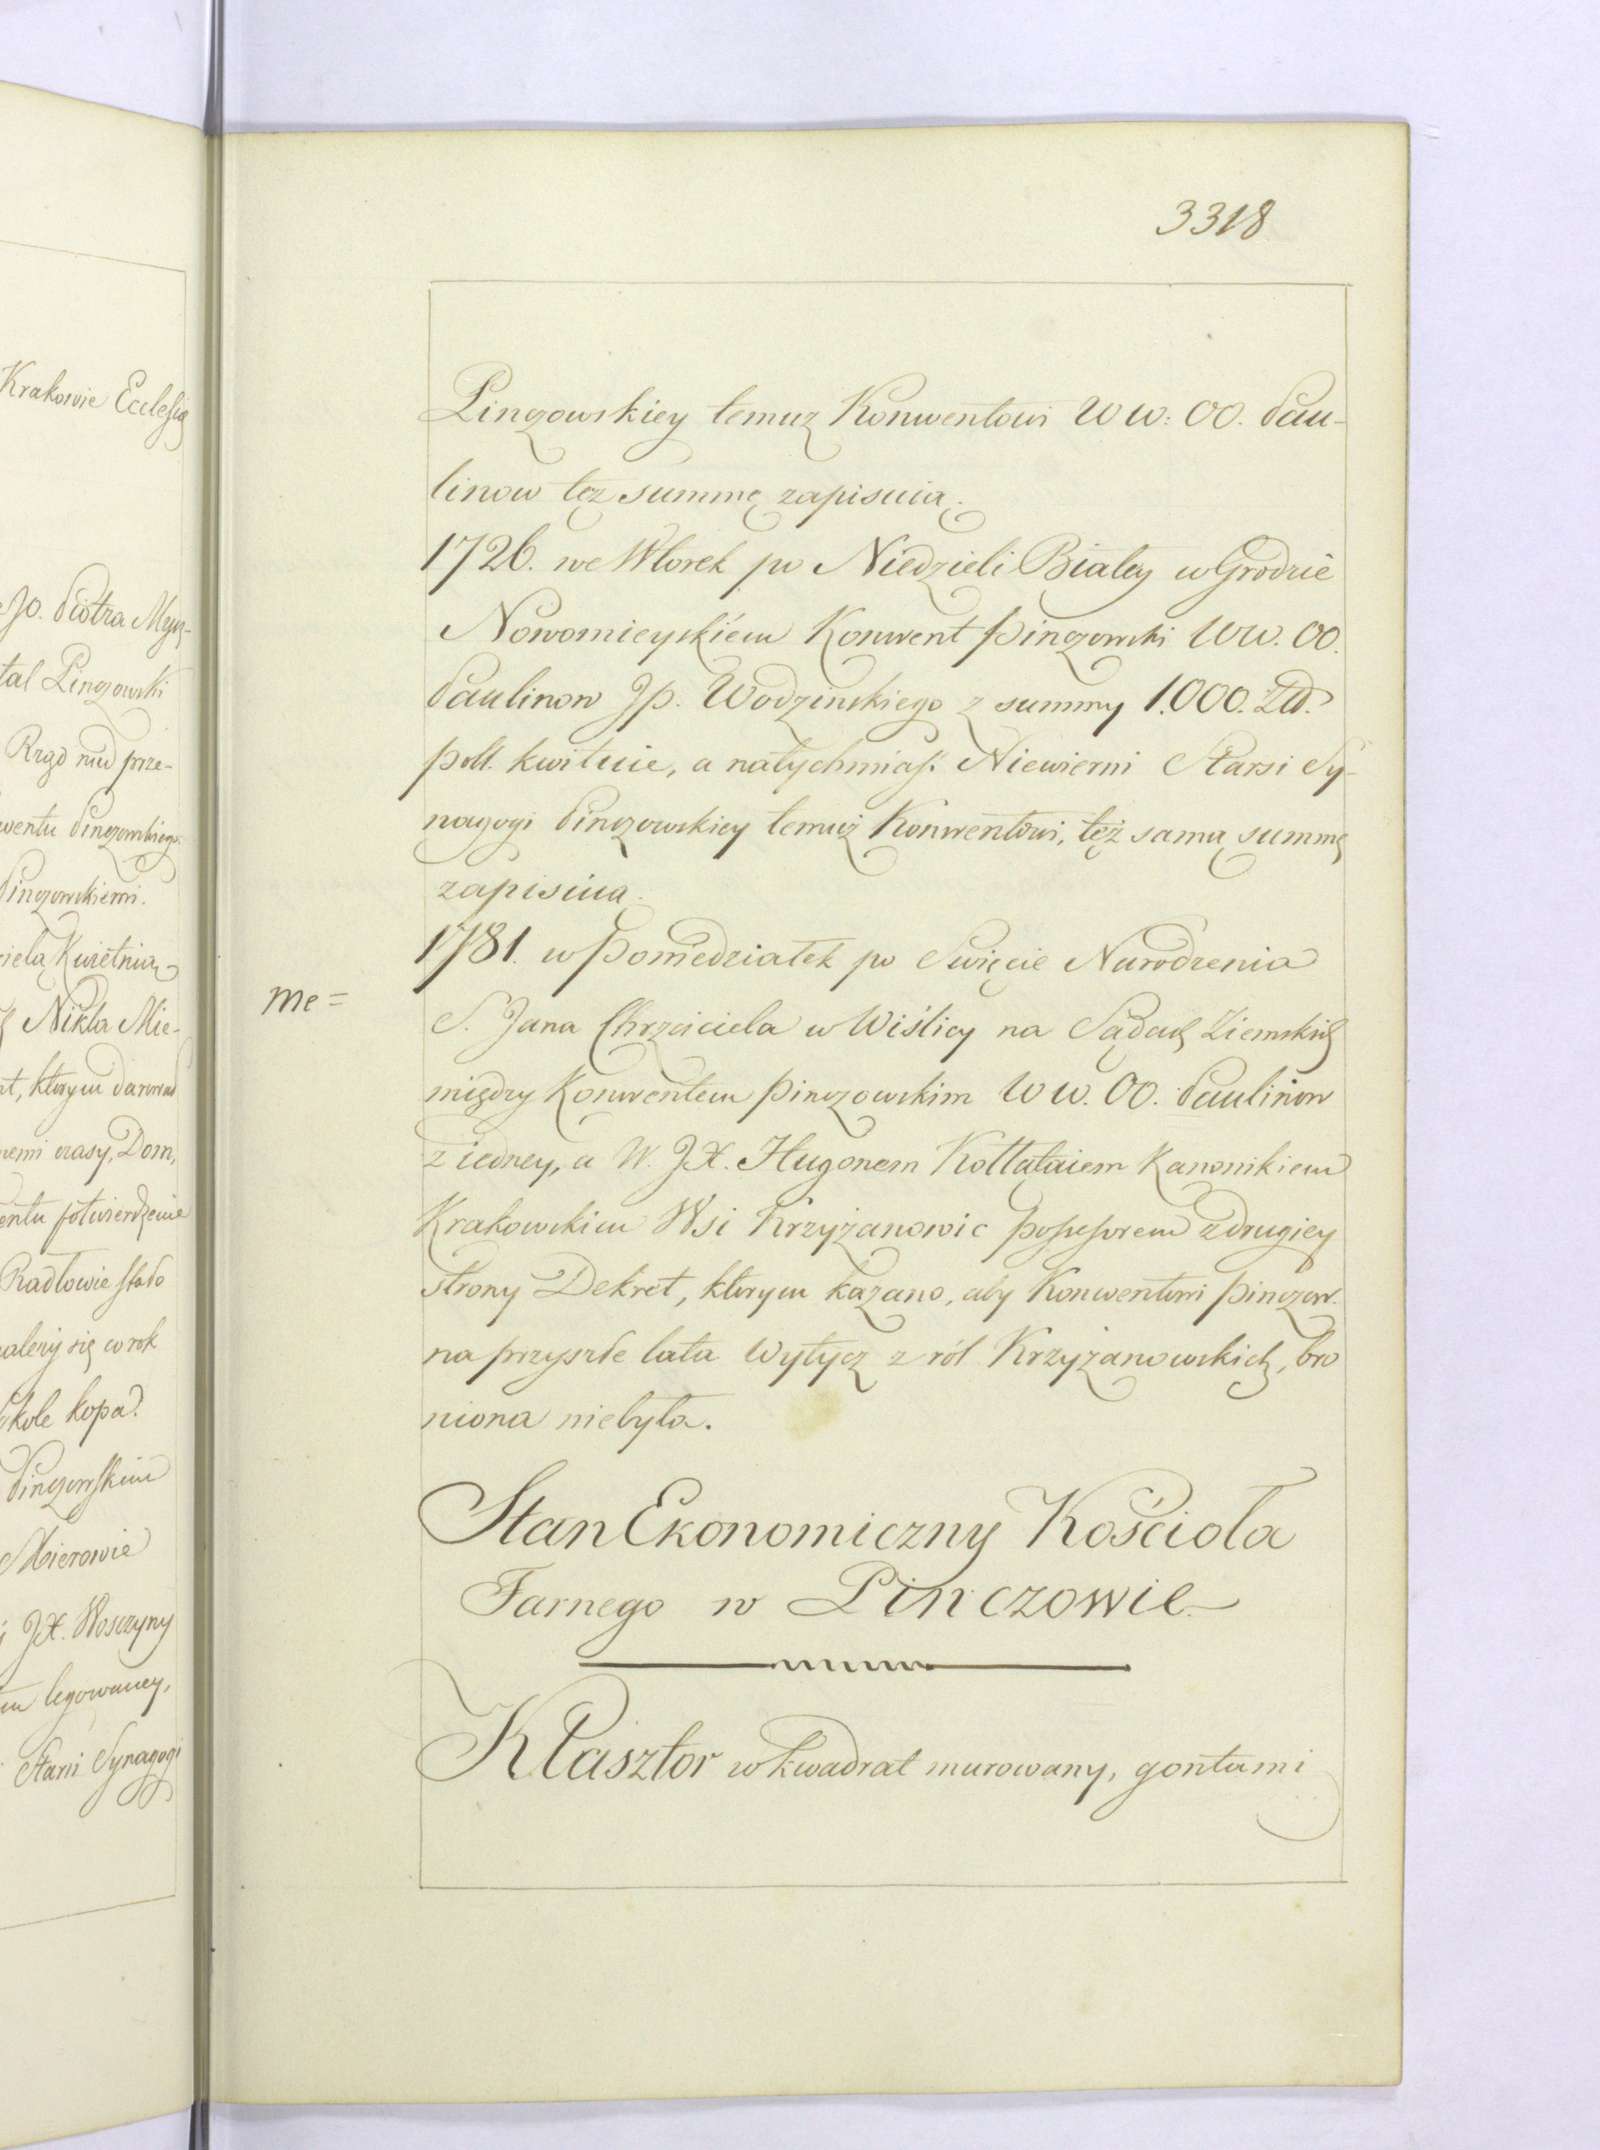 Krakowie Ecclesią
Jo. Piotra Mysz-
tal Pinczowski
Rząd nad prze-
wentu Pinczowskiego
Pinczowskiemi.
iela Kwietnia
Nikla Mie-
at, ktorym darował
nemi czasy, Dom,
entu potwierdzenie
Radłowie stało
należy się co rok
kole kopa.
Pinczowskim
Mierowie
JX. Wosczyny
legowaney,
Starsi Synagogi
3318
Pinczowskiey temuz Konwentowi WW: OO. Pau-
linow tęz summę zapisuią.
1726. we Wtorek po Niedzieli Białey w Grodzie
Nowomieyskiem Konwent Pinczowski WW. OO.
Paulinow Jp. Wodzinskiego z summy 1.000. Zł.
poll. kwituie, a natychmiast Niewierni Starsi Sy-
nagogi Pinczowskiey temuż Konwentowi, tęż samą summę
zapisuią.
1781. w Poniedziałek po Swięcie Narodzenia
me=
S. Jana Chrzciciela w Wiślicy na Sądach Ziemskich
między Konwentem Pinczowskim WW. OO. Paulinow
z iedney, a W. JX. Hugonem Kołłątaiem Kanonikiem
Krakowskim Wsi Krzyżanowic possessorem z drugiey
strony Dekret, ktorym kazano, aby Konwentowi Pinczow.
na przyszłe lata Wytycz z ról Krzyżanowskich, bro
niona niebyła.
Stan Ekonomiczny Kościoła
Farnego w Pinczowie
Klasztor w kwadrat murowany, gontami